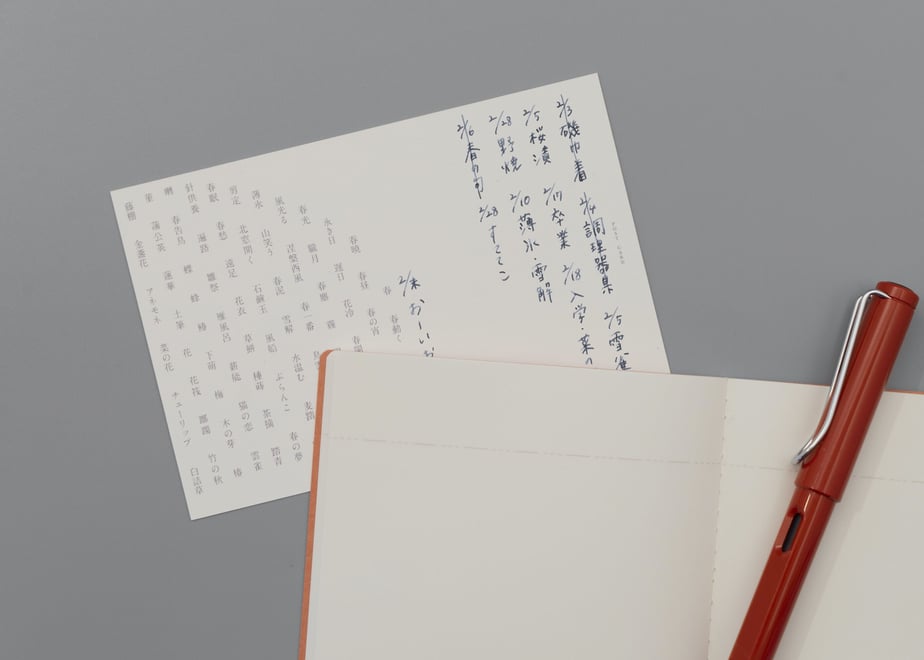 POST CARD
2/3 磯巾着 2/4 調理器具 2/5 雪雀
2/5 桜漬 2/17 卒業 2/18 入学・菜の
2/28 野焼 2/10 薄氷・雪解
2/6 春の旬 2/28 すこここ
2/末 おーいお
春 春動く
春暁 春昼 春の宵
永き日 遅日 花冷
春光 朧月 春塵 霞
風光る 涅槃西風 春一番
薄氷 山笑う 春泥 雪解 水温む 麦踏
剪定 北窓開く 石鹸玉 風船 ぶらんこ 春の夢
春眠 春愁 遠足 花衣 草餅 種蒔 茶摘 踏青
針供養 遍路 雛祭 雁風呂 薪能 猫の恋 雲雀
囀 春告鳥 蝶 蜂 下萌 梅 木の芽 椿
菫 蒲公英 蓮華 土筆 花 花筏 躑躅 竹の秋
藤棚 金盞花 アネモネ 菜の花 チューリップ 白詰草